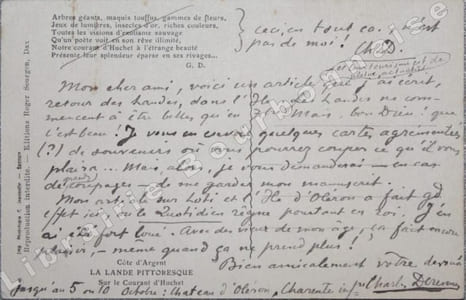 Arbres géants, maquis touffus, gammes de fleurs,
Jeux de lumières, insectes d'or, riches couleurs,
Toutes les visions d'exaltante sauvage
Qu'un poète voit en son rêve illimité,
Notre courant d'Huchet à l'étrange beauté
Présente leur splendeur éparse en ses rivages...
G. D.
ceci, en tout cas, n'est
pas de moi ! Ch. D.
et un tourisme de
Mon cher ami, voici un article que j'ai écrit,
retour des Landes, dans l' Les Landes ne com-
mencent à être belles qu'en Mais, bon Dieu ! que
c'est beau ! Je vous en envoie quelques cartes agrémentées
(?) de souvenirs où vous pourrez couper ce qu'il vous
plaira... Mais, alors, je vous demanderai en cas
de coupages de me garder mon manuscrit.
grands
Mon article sur Loti et l'Île d'Oléron a fait gd
effet ici, où le Quotidien règne pourtant en roi. J'en
ai été fort loué. Avec des vieux de mon âge, ça fait encore
plaisir, - même quand ça ne prend plus !
Bien amicalement votre dévoué
Charles Derennes
Côte d'Argent
LA LANDE PITTORESQUE
Sur le Courant d'Huchet
Jusqu'au 5 ou 10 Octobre : Château d'Oléron, Charente infre
Reproduction interdite. Editions Roger Sourgen, Dax
Librairie Bourbonnaise